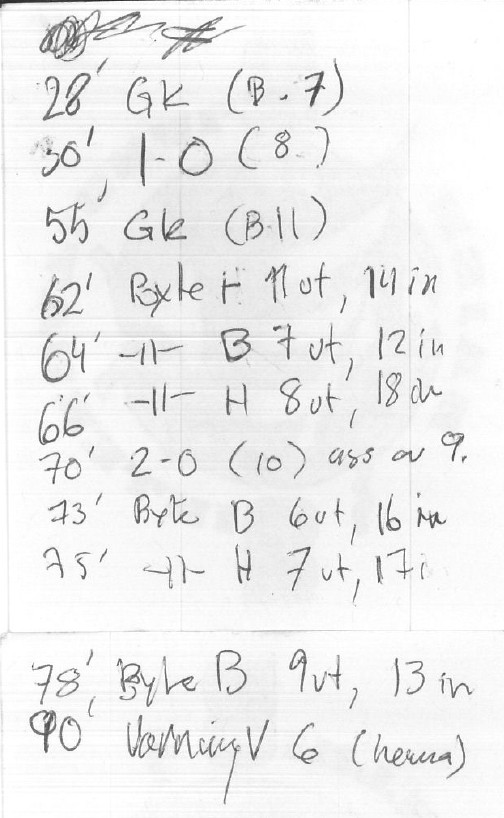 28' Gk (B.7)
30' 1-0 (8)
55' Gk (B11)
62' Byte H 11 ut, 14 in
64' -||- B 7 ut, 12 in
66' -||- H 8 ut, 18 in
70' 2-0 (10) ass av 9.
73' Byte B 6 ut, 16 in
75' -||- H 7 ut, 17 i
78' Byte B 9 ut, 13 in
90' Varning 6 (herna)